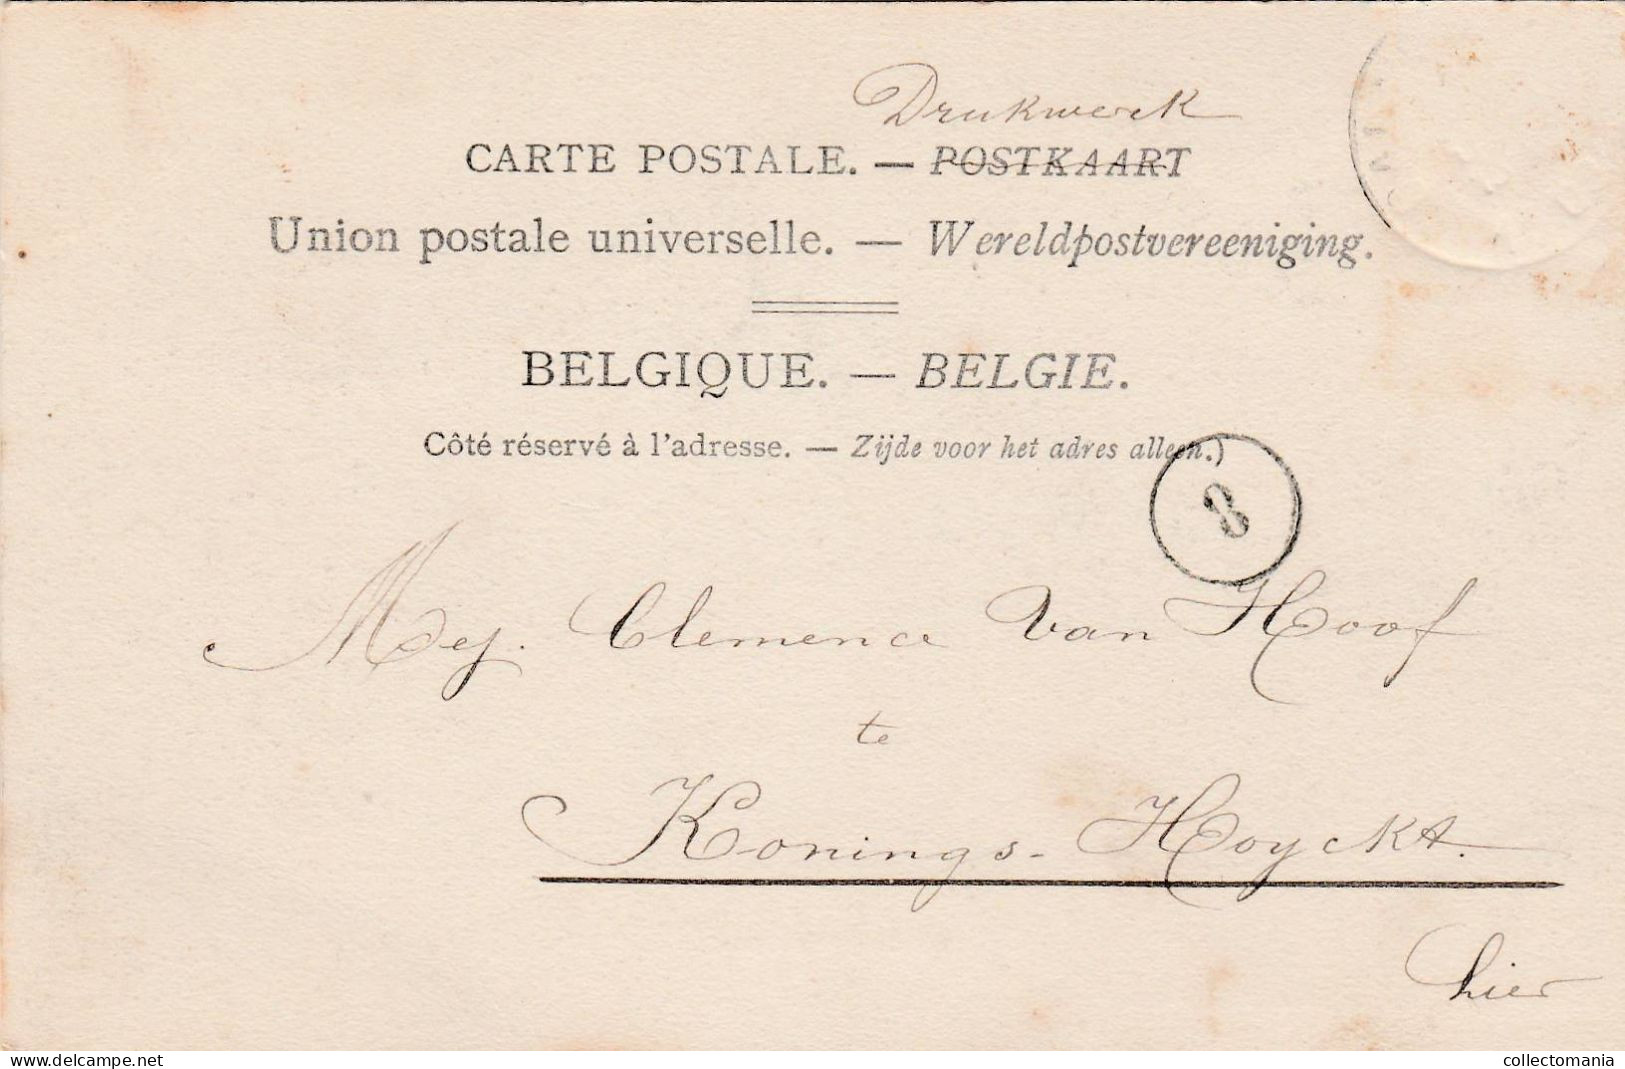 Drukwerk
CARTE POSTALE. — POSTKAART
Union postale universelle. — Wereldpostvereeniging.
BELGIQUE. — BELGIE.
Côté réservé à l'adresse. — Zijde voor het adres alleen.)
8
Mej. Clemence Van Hoof
te
Konings-Hoyckt.
hier
delcampe.net
collectomania